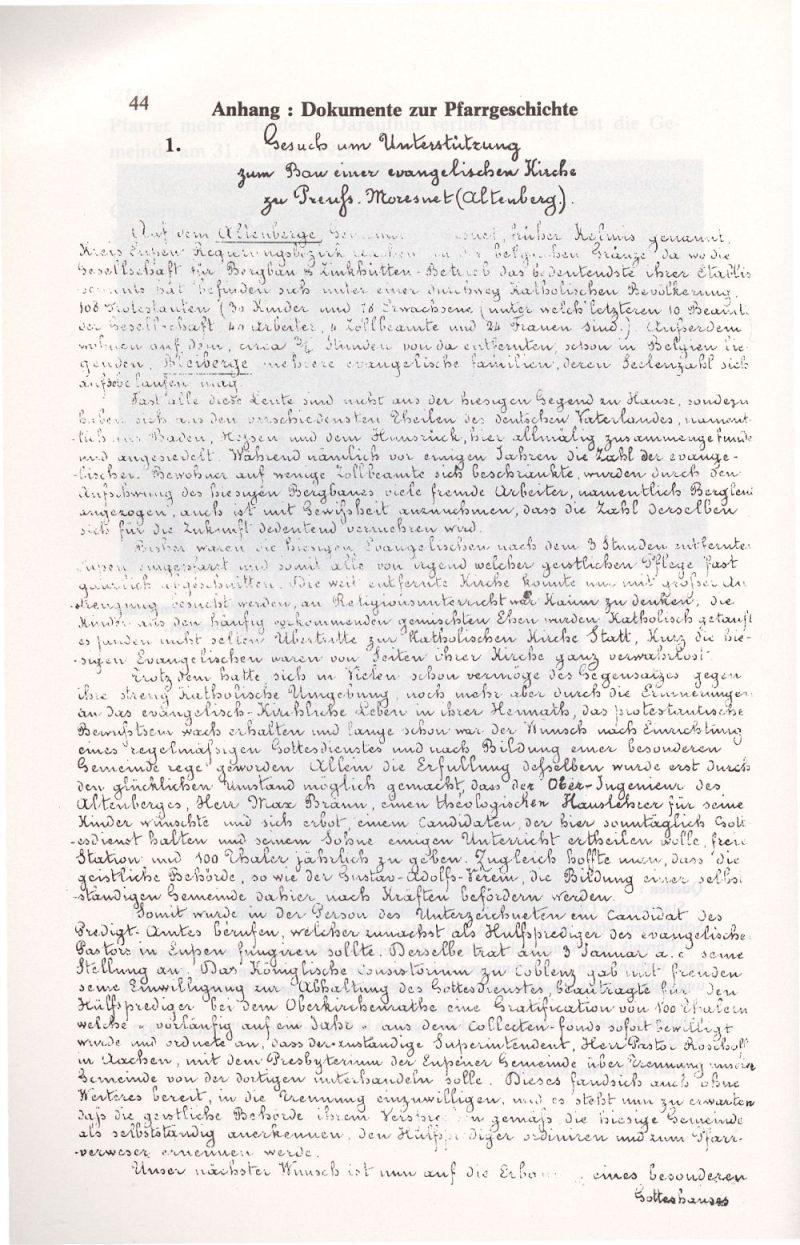 44
Anhang : Dokumente zur Pfarrgeschichte
1. Gesuch um Unterstützung
zum Bau einer evangelischen Kirche
zu Preuss. Moresnet (Altenberg).
Auf dem Altenberge, früher Kelmis genannt,
Kreis Eupen Regierungsbezirk Aachen an der belgischen Gränze, da wo die
Gesellschaft für Bergbau & Zinkhütten-Betrieb das bedeutendste ihrer Etablis-
sements hat befinden sich unter einer durchweg Katholischen Bevölkerung,
108 Protestanten (30 Kinder und 78 Erwachsene (unter welch letzteren 10 Beamt.
der Gesellschaft 40 Arbeiter, 4 Zöllbeamte und 24 Frauen sind.) Außerdem
wohnen auf dem, circa ¾ Stunden von da entfernten, schon in Belgien lie-
genden, Bleiberge mehrere evangelische Familien, deren Seelenzahl sich
auf belaufen mag
Fast alle diese Leute sind nicht aus der hiesigen Gegend zu Hause, sondern
haben sich aus den verschiedensten Theilen des deutschen Vaterlandes, nament-
-lich aus Baden, Hessen und dem Hunsrück, hier allmälig zusammengefunde
und angesiedelt. Während nämlich vor einigen Jahren die Zahl der evange-
-lischer Bewohner auf wenige Zollbeamte sich beschränkte, wurden durch den
Aufschwung des hiesigen Bergbaues viele fremde Arbeiter, namentlich Bergleut
angezogen, auch ist mit Gewißheit anzunehmen, dass die Zahl derselben
sich für die Zukunft bedeutend vermehren wird.
Bisher waren die hiesigen Evangelischen nach dem 3 Stunden entfernten
Eupen eingepfarrt und somit alle von irgend welcher geistlichen Pflege fast
gänzlich abgeschnitten. Die weit entfernte Kirche konnte nur mit großer An
-strengung besucht werden, an Religionsunterricht war kaum zu denken, die
Kinder aus den häufig vorkommenden gemischten Ehen wurden Katholisch getauft
es fanden nicht selten Übertritte zur Katholischen Kirche Statt, Kurz die hie-
-sigen Evangelischen waren von Seiten ihrer Kirche ganz verwahrlost.
Trotzdem hatte sich in Vielen schon vermöge des Gegensatzes gegen
ihre streng Katholische Umgebung, noch mehr aber durch die Erinnerungen
an das evangelisch-Kirchliche Leben in ihrer Heimath, das protestantische
Bewußtsein wach erhalten und lange schon war der Wunsch nach Einrichtung
eines regelmässigen Gottesdienstes und nach Bildung einer besonderen
Gemeinde rege geworden. Allein die Erfüllung deßelben wurde erst durch
den glücklichen Umstand möglich gemacht, dass der Ober-Ingenieur des
Altenberges, Herr Max Braun, einen theologischen Hauslehrer für seine
Kinder wünschte und sich erbot, einem Candidaten, der hier sonntäglich Gott
-esdienst halten und seinem Sohne einigen Unterricht ertheilen wolle, freie
Station und 100 Thaler jährlich zu geben. Zugleich hoffte man, dass die
geistliche Behörde, so wie der Gustav-Adolfs-Verein, die Bildung einer selbs
-ständigen Gemeinde dahier nach Kräften befördern werden.
Somit wurde in der Person des Unterzeichneten ein Candidat des
Predigt-Amtes berufen, welcher zunächst als Hülfsprediger des evangelische
Pastors in Eupen fungiren sollte. Derselbe trat am 3 Januar a.c. seine
Stellung an. Das Königlische Consistorium zu Coblenz gab mit freuden
seine Einwilligung zur Abhaltung des Gottesdienstes, beautragte für den
Hülfsprediger bei dem Oberkirchenrathe eine Gratification von 100 Thalern
welche "vorläufig auf ein Jahr" aus dem Collecten-fonds sofort bewilligt
wurde und ordnete an, dass der zuständige Superintendent, Herr Pastor
in Aachen, mit dem Presbyterium der Eupener Gemeinde über Trennung unsere
Gemeinde von der dortigen unterhandeln solle. Dieses fand sich auch ohne
Weiteres bereit, in die Trennung einzuwilligen, und es steht nun zu erwarten
daß die geistliche Behörde ihrem gemäß, die hiesige Gemeinde
als selbstständig anerkennen, den ordiniren und zum Pfarr-
-verweser ernennen werde.
Unser nächster Wunsch ist nun auf die eines besonderen
Gotteshauses